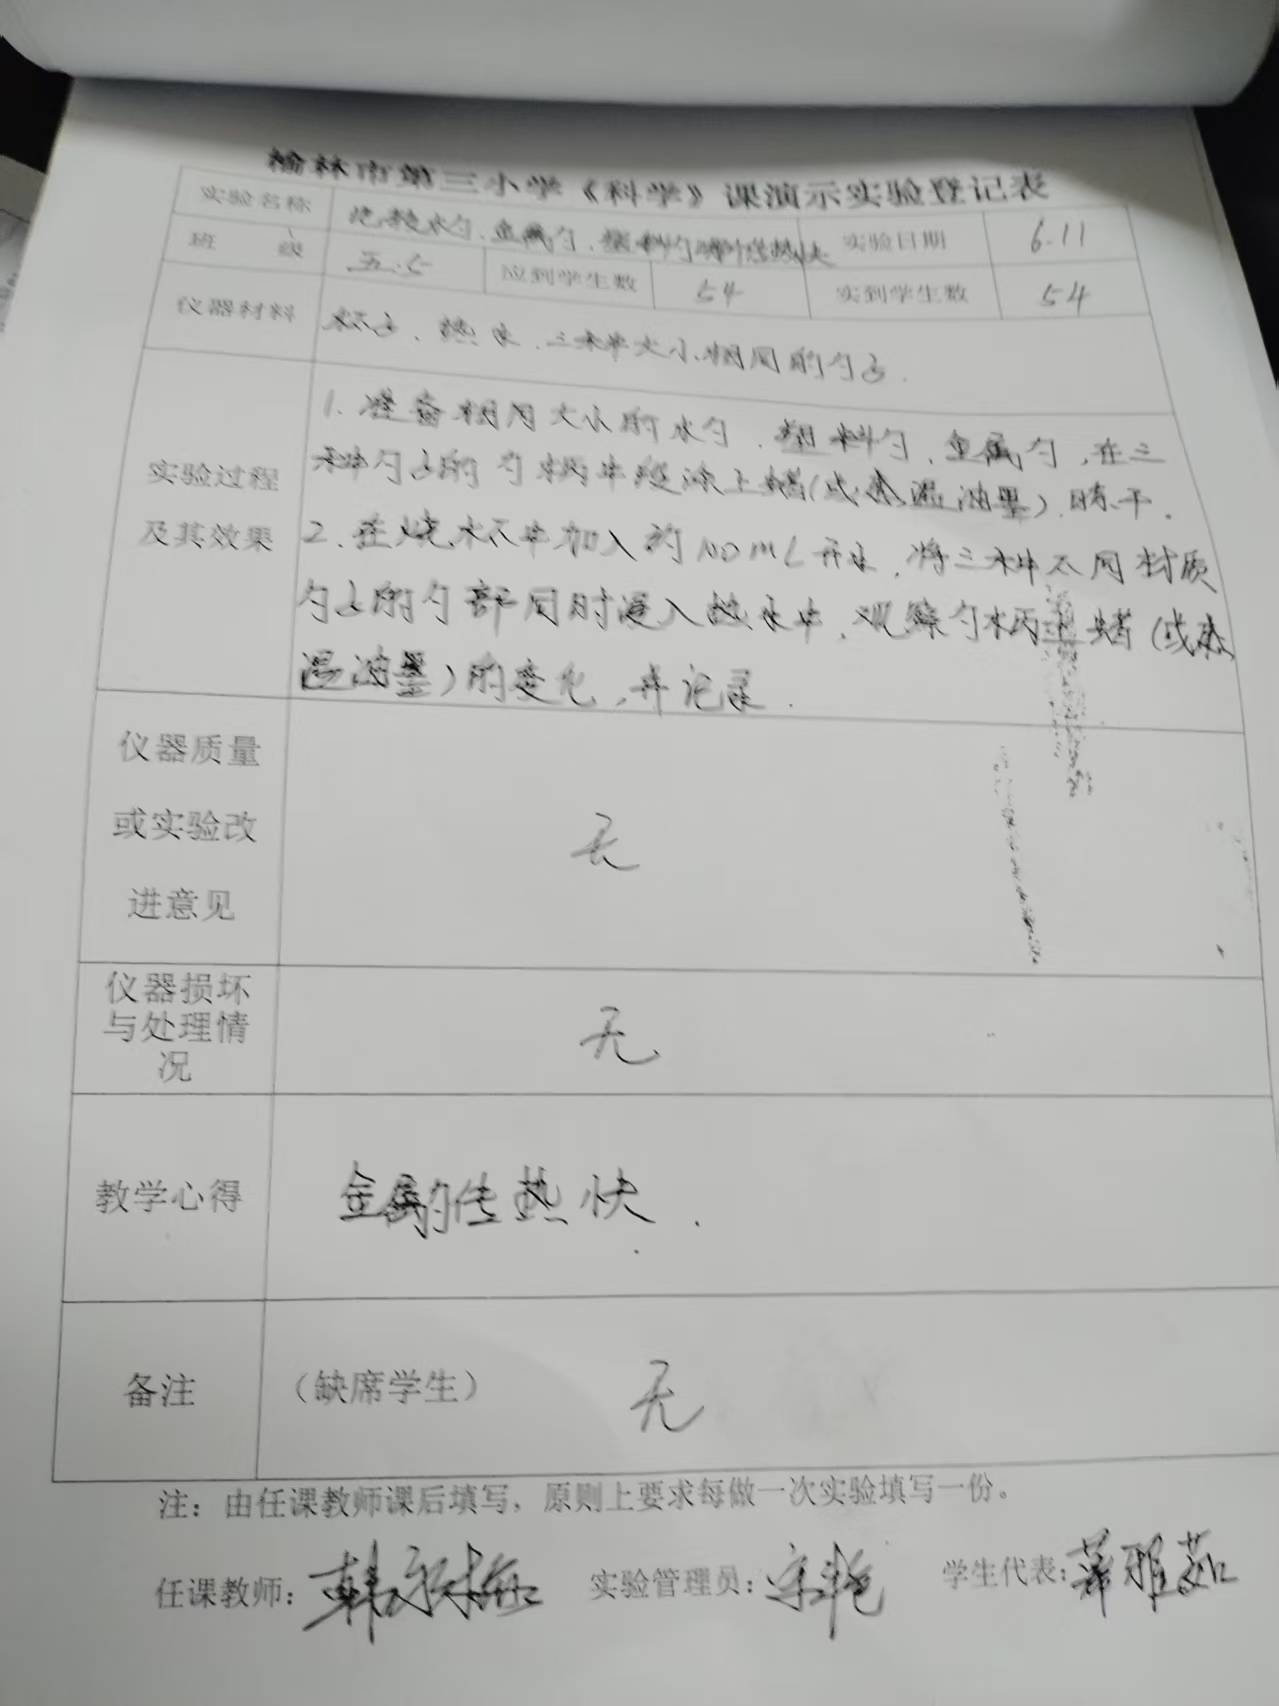 榆林市第三小学《科学》课演示实验登记表
实验名称 比较木勺、金属勺、塑料勺哪个传热快 实验日期 6.11
班级 五.5 应到学生数 54 实到学生数 54
仪器材料 杯子、热水、三种大小相同的勺子.
1. 准备相同大小的木勺、塑料勺、金属勺,在三
实验过程 种勺子的勺柄中段涂上蜡(或感温油墨),晾干.
及其效果 2. 在烧杯中加入约100mL开水,将三种不同材质
勺子的勺部同时浸入热水中,观察勺柄上蜡(或感
温油墨)的变化,并记录.
仪器质量
或实验改 无
进意见
仪器损坏
与处理情 无
况
教学心得 金属勺传热快.
备注 (缺席学生) 无
注:由任课教师课后填写,原则上要求每做一次实验填写一份。
任课教师: 实验管理员:宋艳 学生代表:雅茹